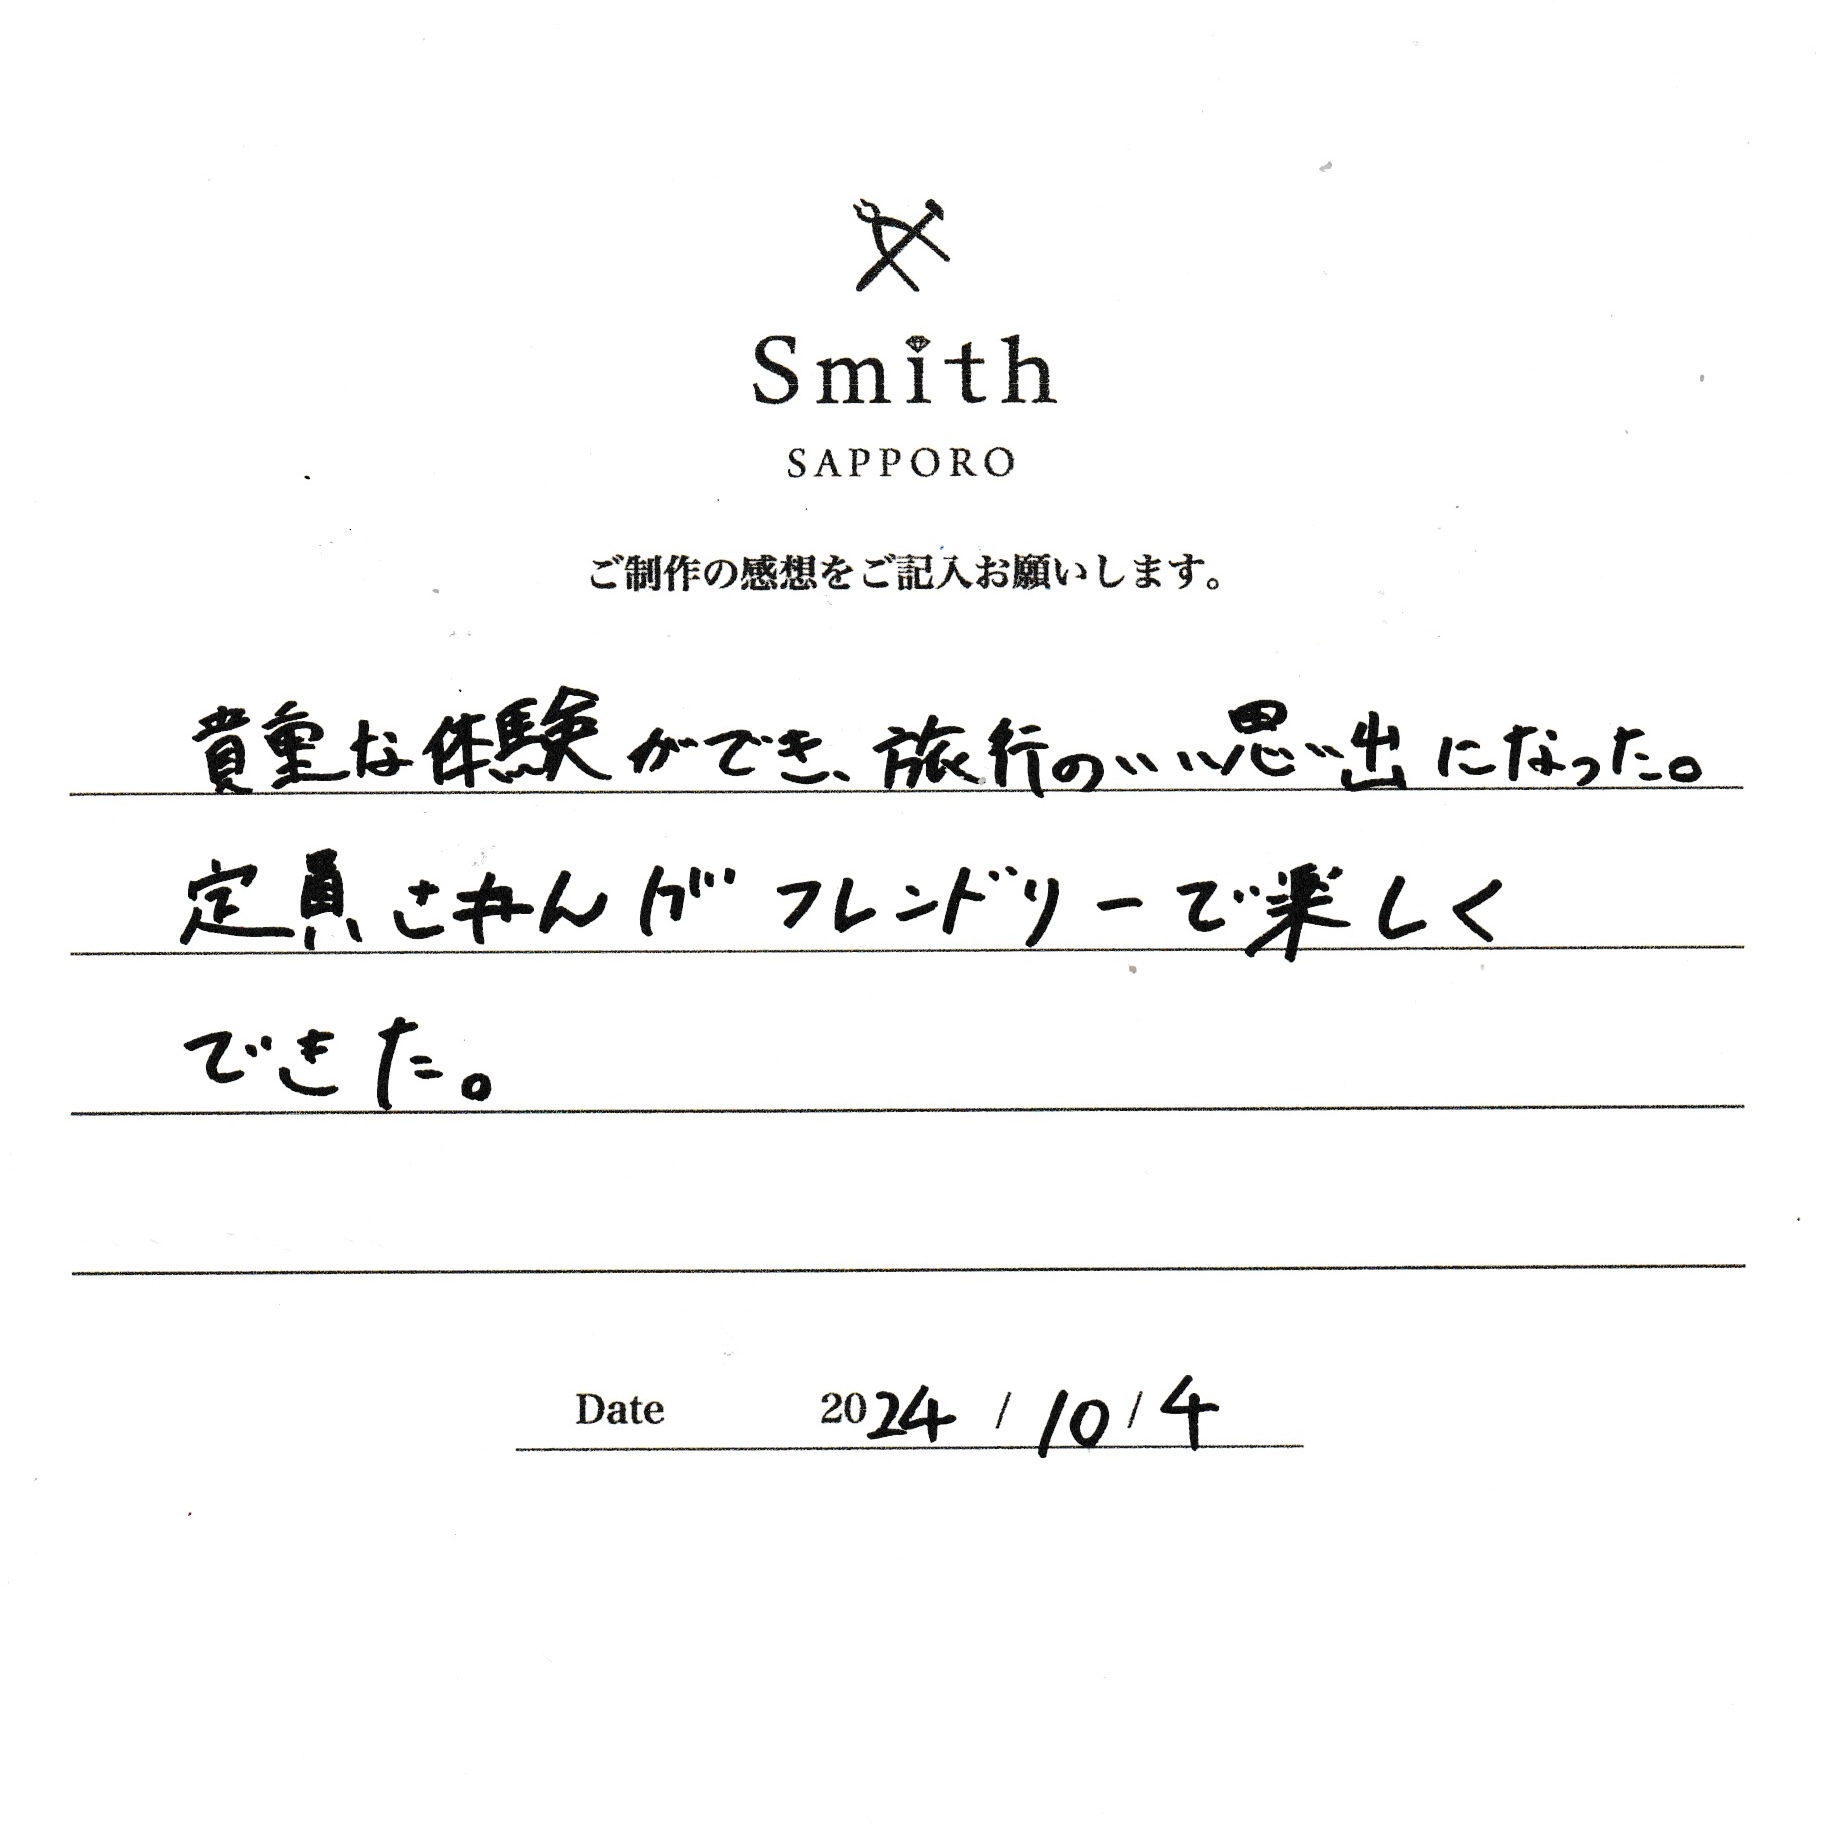 Smith
SAPPORO
ご制作の感想をご記入お願いします。
貴重な体験ができ、旅行のいい思い出になった。
定員さんがフレンドリーで楽しく
できた。
Date 2024 / 10 / 4